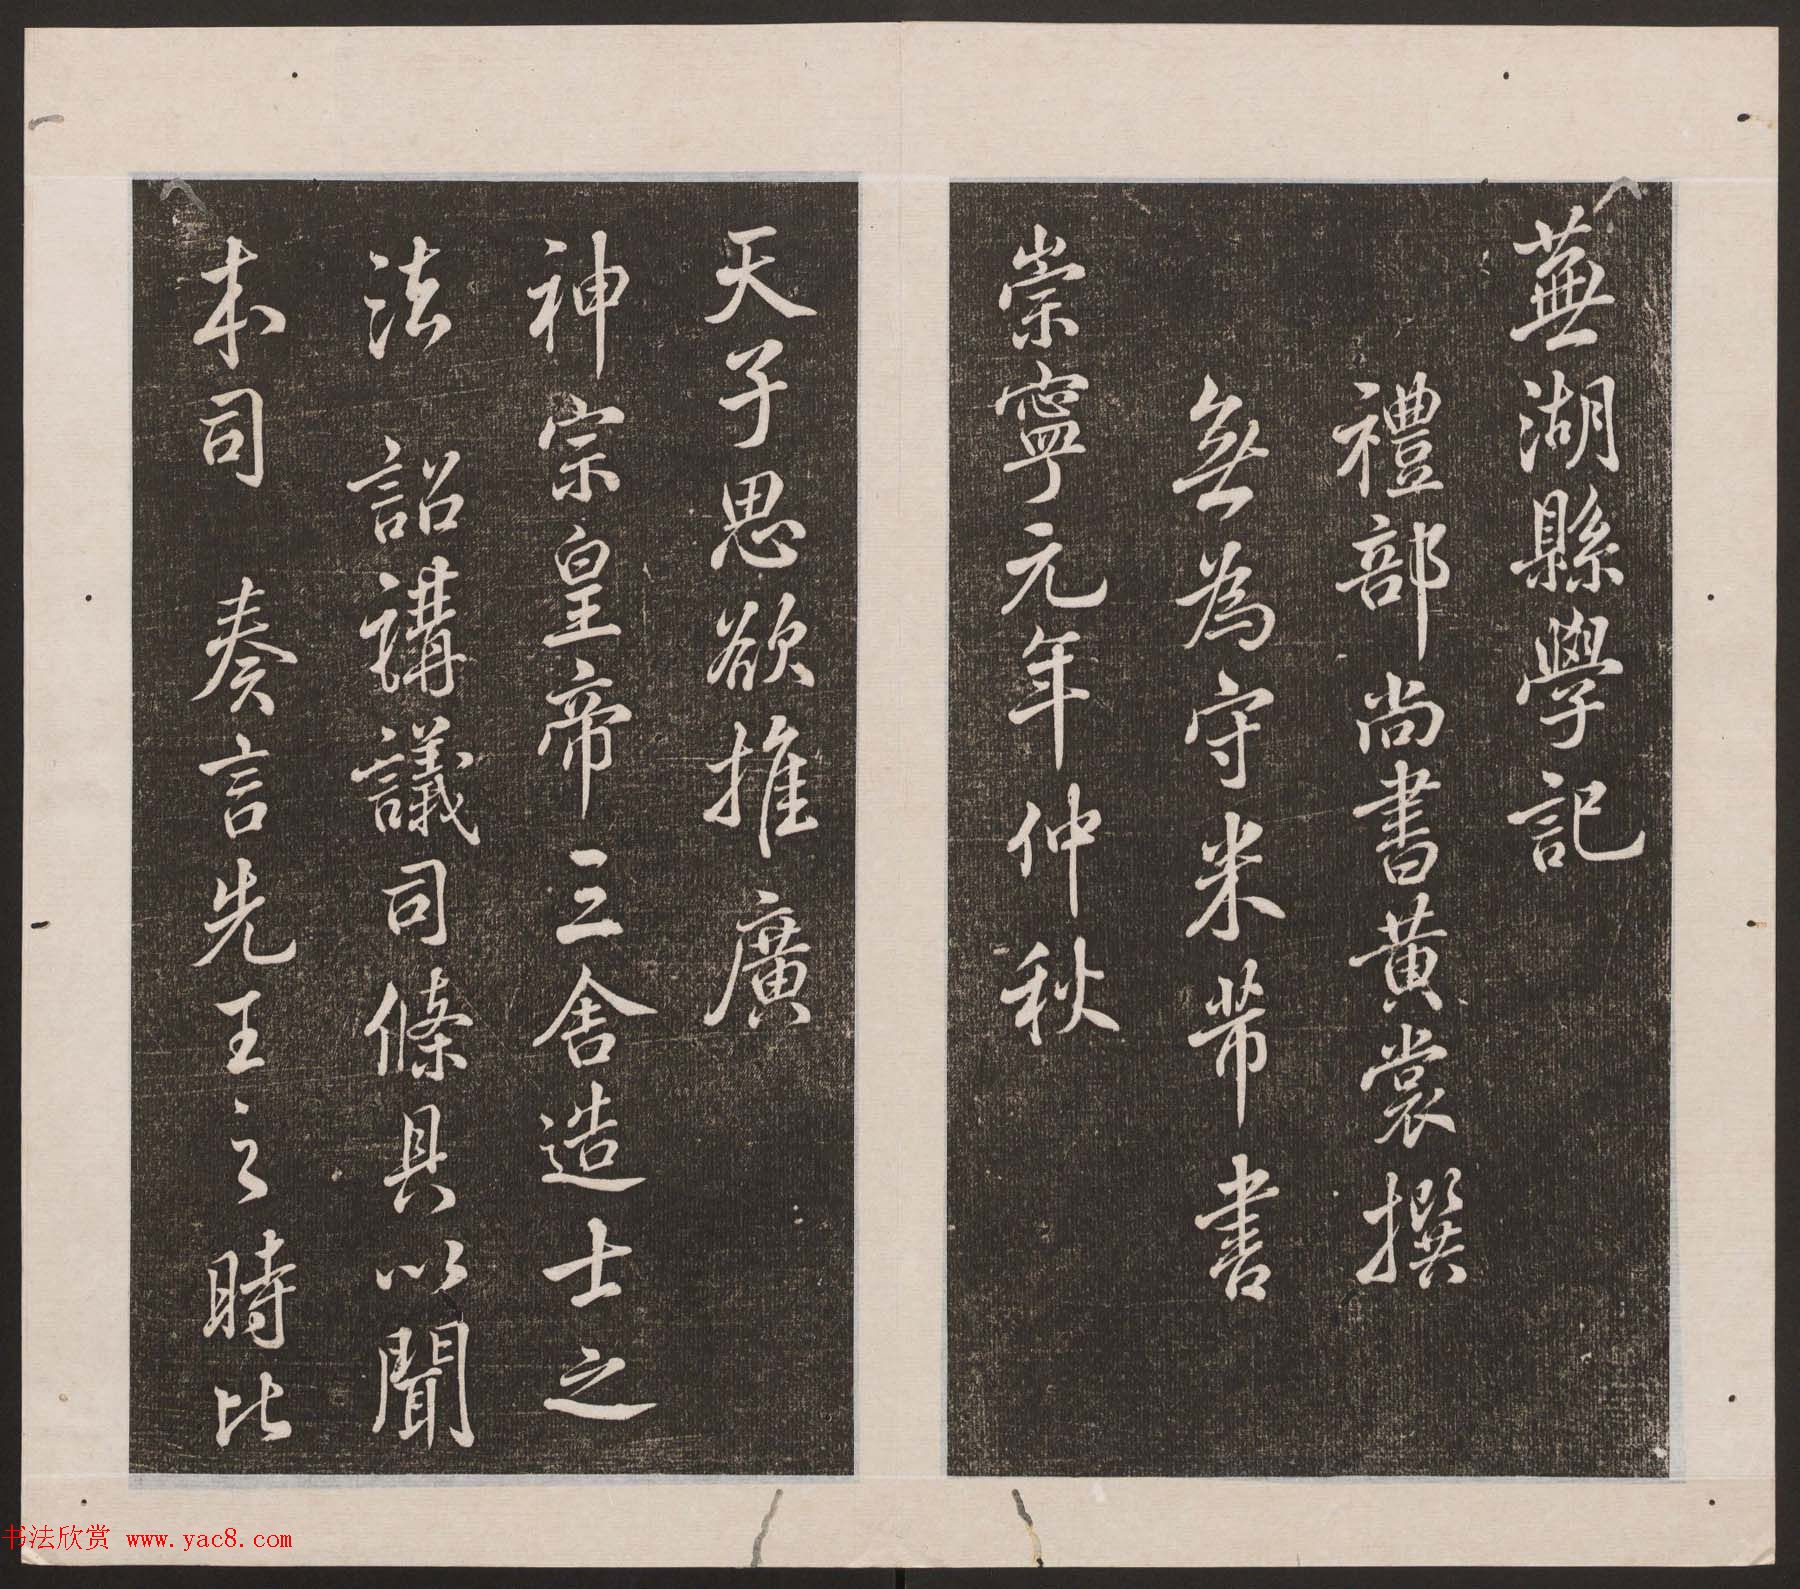 蕪湖縣學記
禮部尚書黄裳撰
無為守米芾書
崇寧元年仲秋
天子思欲推廣
神宗皇帝三舍造士之
法 詔講議司條具以聞
本司 奏言先王之時比
书法欣赏 www.yac8.com